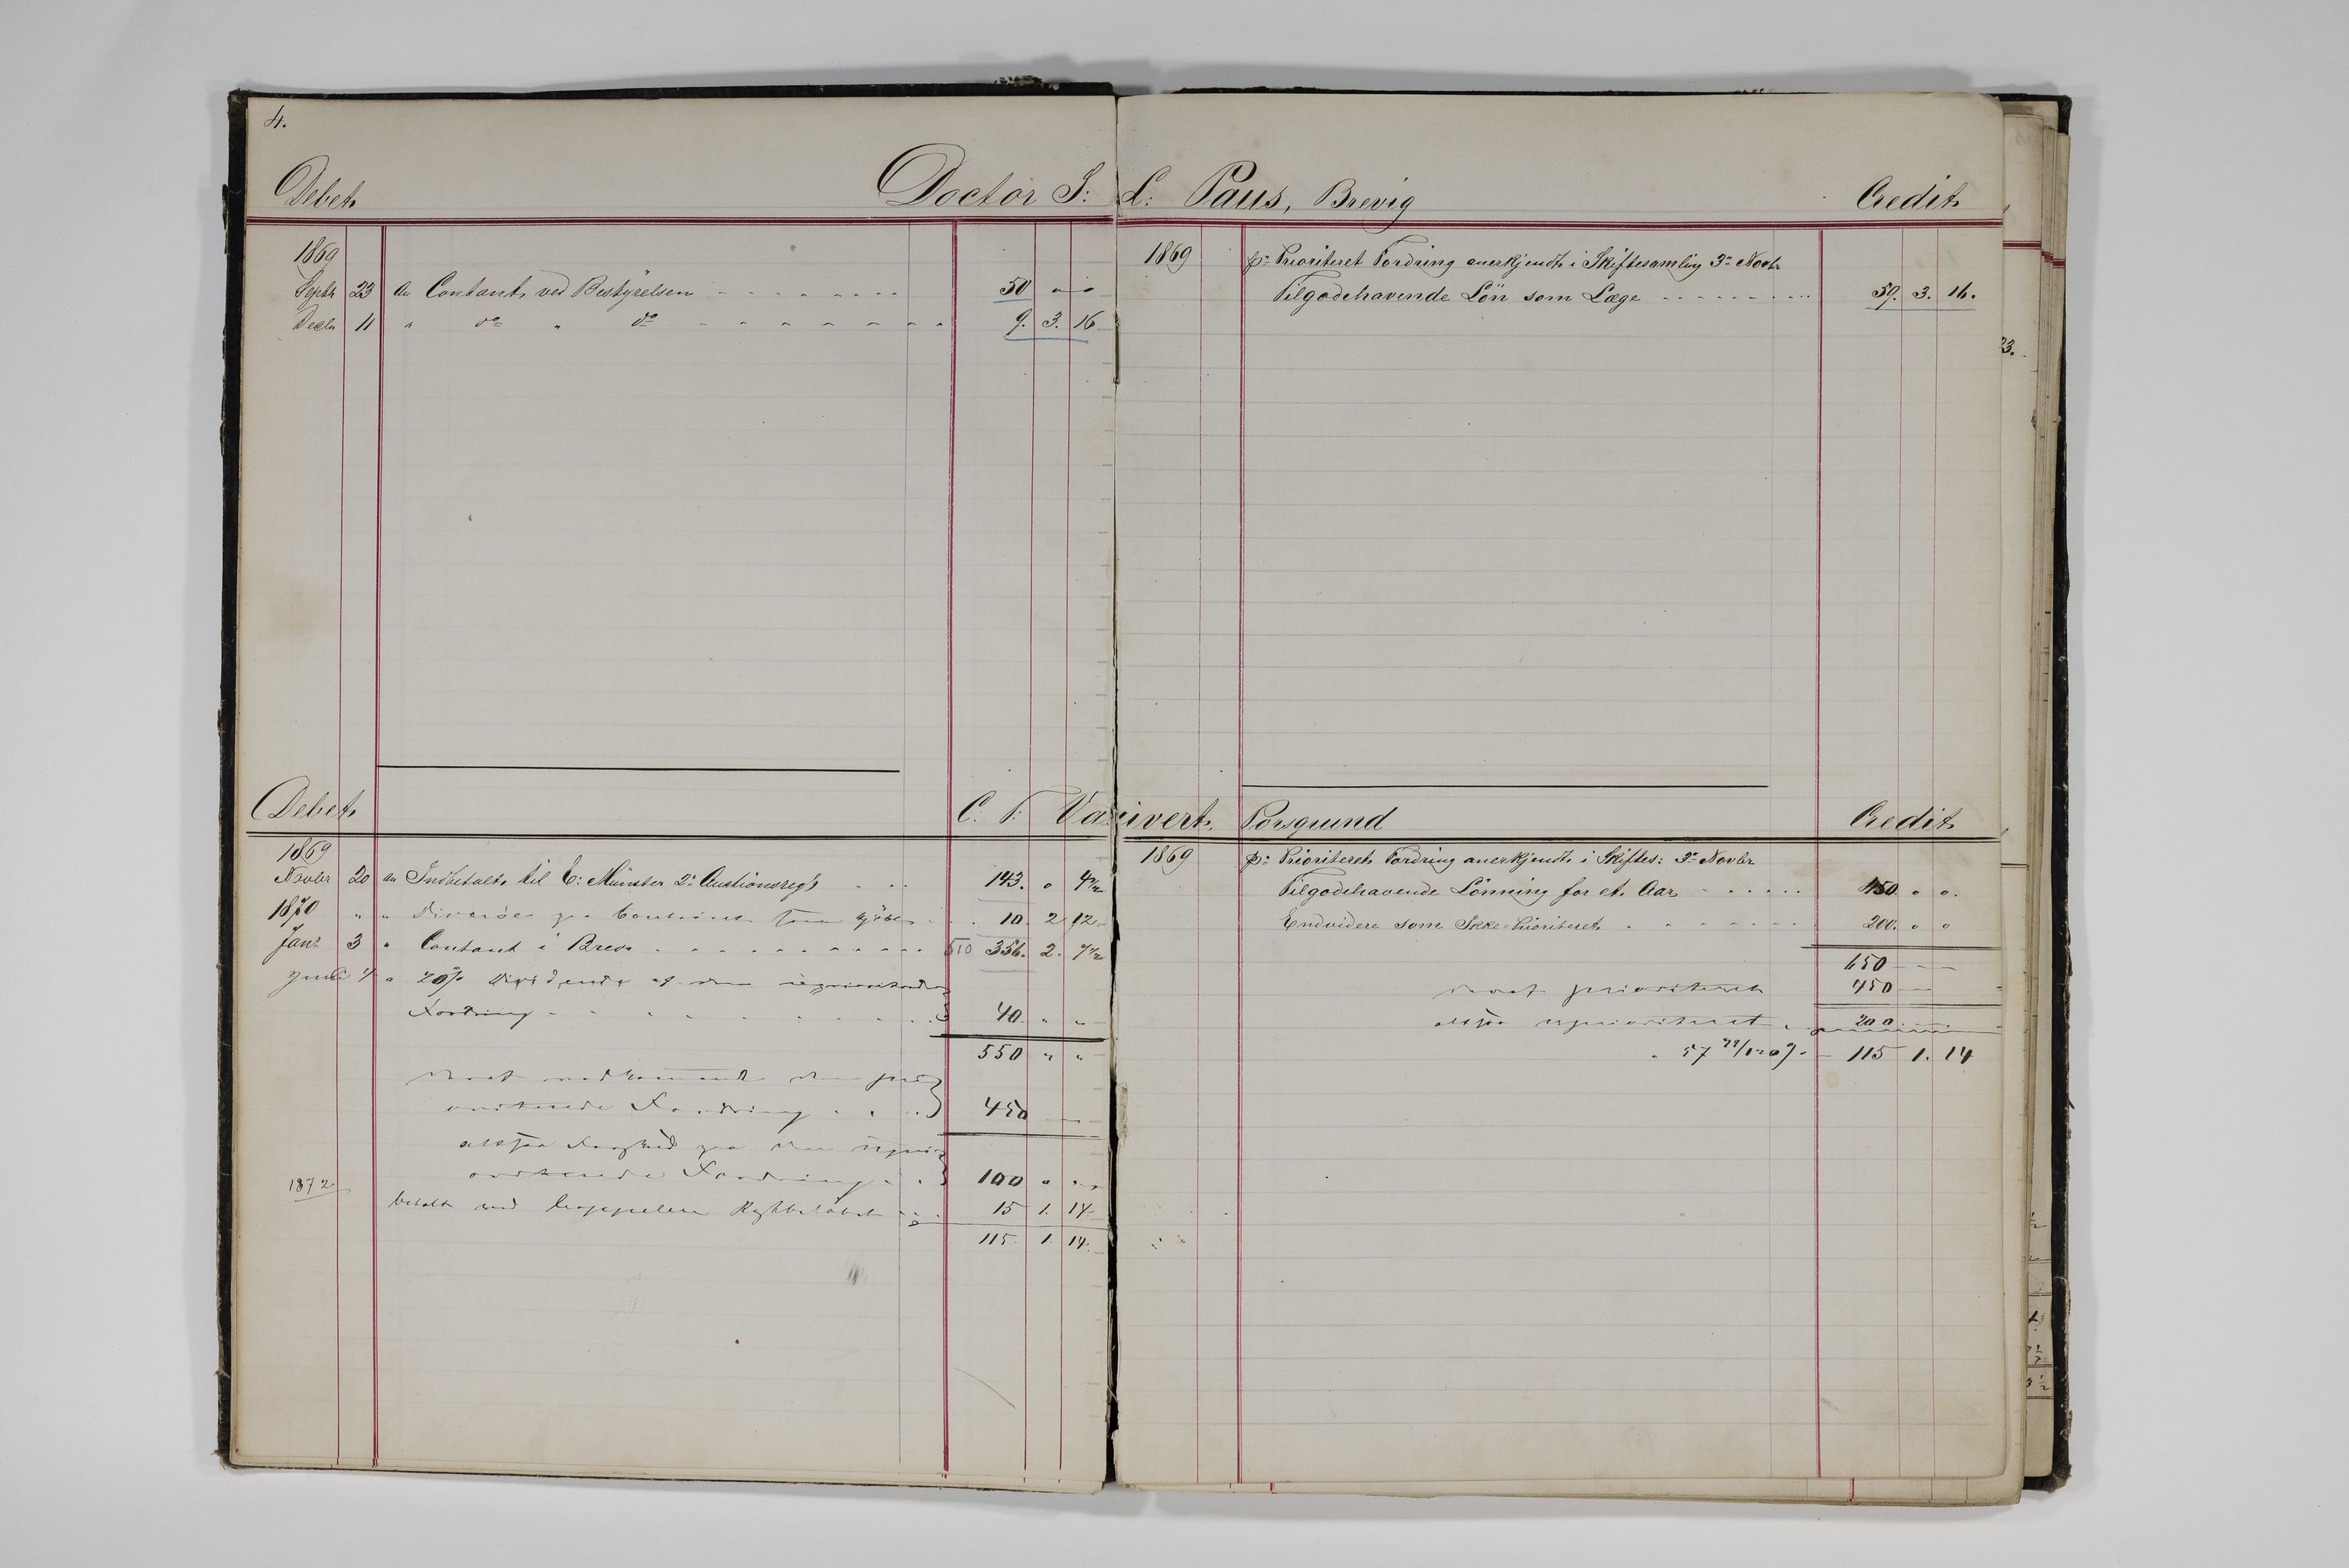 4.
Debet
Doctor J: L: Paus, Brevig
Credit
1869
Septbr 23 an Contant ved Bestyrelsen 50 " "
Decbr 11 " do " do 9. 3. 16
1869 pr Prioriteret Fordring anerkjendt i Skiftesamling 3die Novbr
Tilgodehavende Lön som Læge 59. 3. 16.
Debet
C. F: Vauvert, Porsgrund
Credit
1869
Novbr 20 an Indbetalt til E: Münster 2: Auctionsreg. 143. " 4 1/2
1870 " " Diverse Contraict 10. 2 12
Janr 3 " Contant i Brev 510 356. 2. 7 1/2
Juli " 20% Dividende af den uprioriterede
Fordring 40. " "
550 " "
deraf vedkommende den pri-
oriterede Fordring 450
altsaa den upri-
oriterede Fordring 100 " "
1872
betalt ved Restbeløbet 15 1. 14
115. 1. 14.
1869 pr Prioriteret Fordring anerkjendt i Skiftes: 3die Novbr
Tilgodehavende Lønning for et Aar 450 " "
Endvidere som Ikke-Prioriteret 200. " "
650
deraf prioriteret 450
altsaa uprioriteret 200
115 1. 14